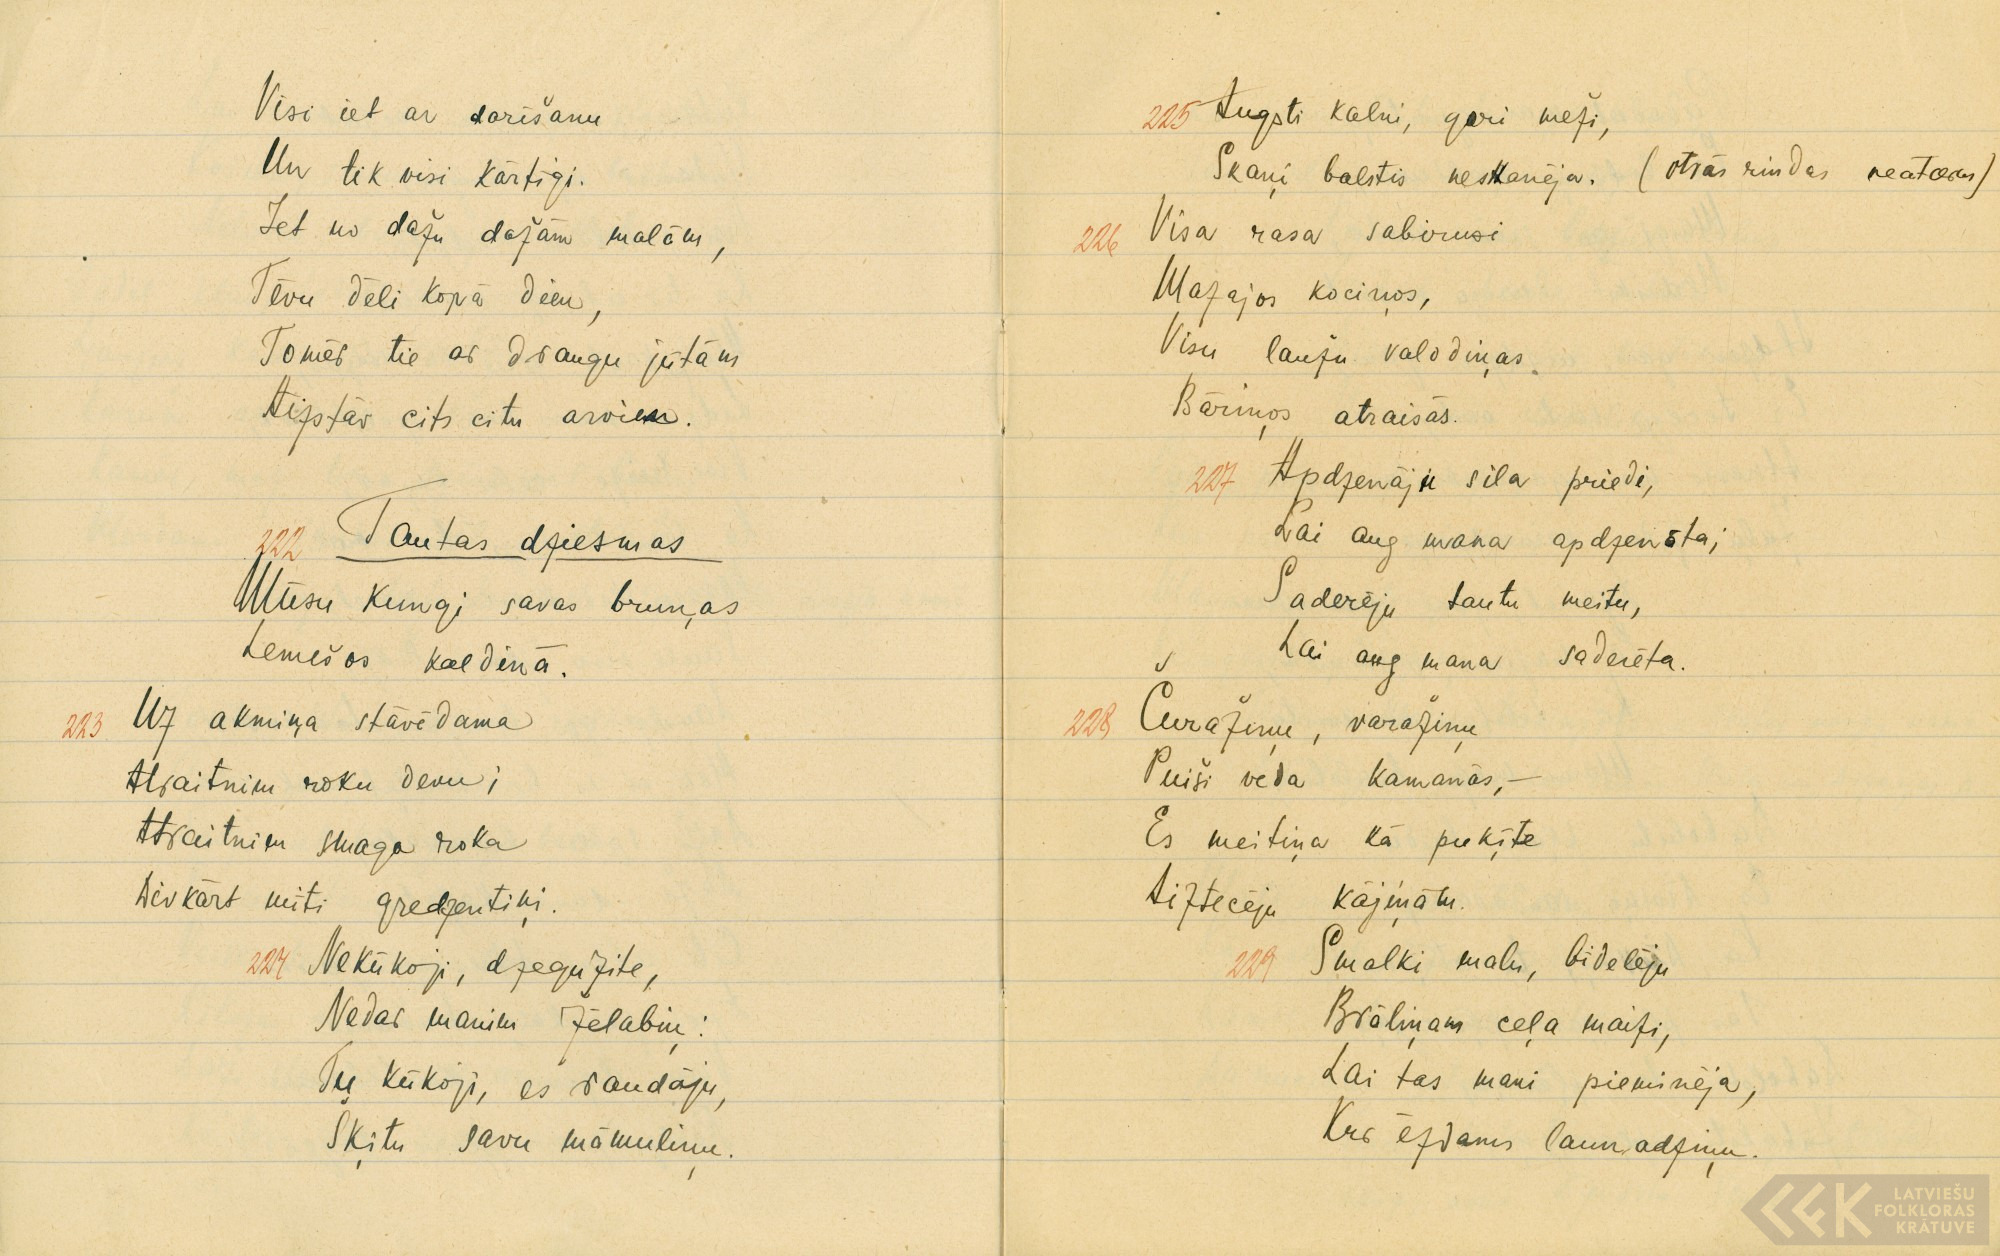 Visi iet ar darīšanu
Un tik visi kārtīgi.
Iet no dažu dažām malām,
Tēvu dēli kopā dien,
Tomēr tie ar draugu jūtām
Aizstāv cits citu arvien.
222 Tautas dziesmas
Mūsu kungi savas bruņas
Lemešos kaldinā.
223 Uz akmiņa stāvēdama
Atraitnim roku devu;
Atraitnim smaga roka
Divkārt mīti gredzentiņi.
224 Nekūkoji, dzegužite,
Nedar manim žēlabiņ:
Tu kūkoji, es raudāju,
Šķitu savu māmuliņu.
225 Augsti kalni, gari meži,
Skaņi balstis neskanēja. (otrās rindas neatceras)
226 Visa rasa sabirusi
Mazajos kociņos,
Visu laužu valodiņas
Bāriņos atraisās.
227 Apdzenāju sila priedi,
Lai aug mana apdzenāta;
Saderēju tautu meitu,
Lai aug mana saderēta.
228 Čuražiņu, varažiņu
Puiši veda kamanās,—
Es meitiņa kā puķīte
Aiztecēju kājiņām.
229 Smalki malu, bīdelēju
Brāliņam ceļa maizi,
Lai tas mani pieminēja,
Kur ēzdams launadziņu.
LATVIEŠU
FOLKLORAS
KRĀTUVE